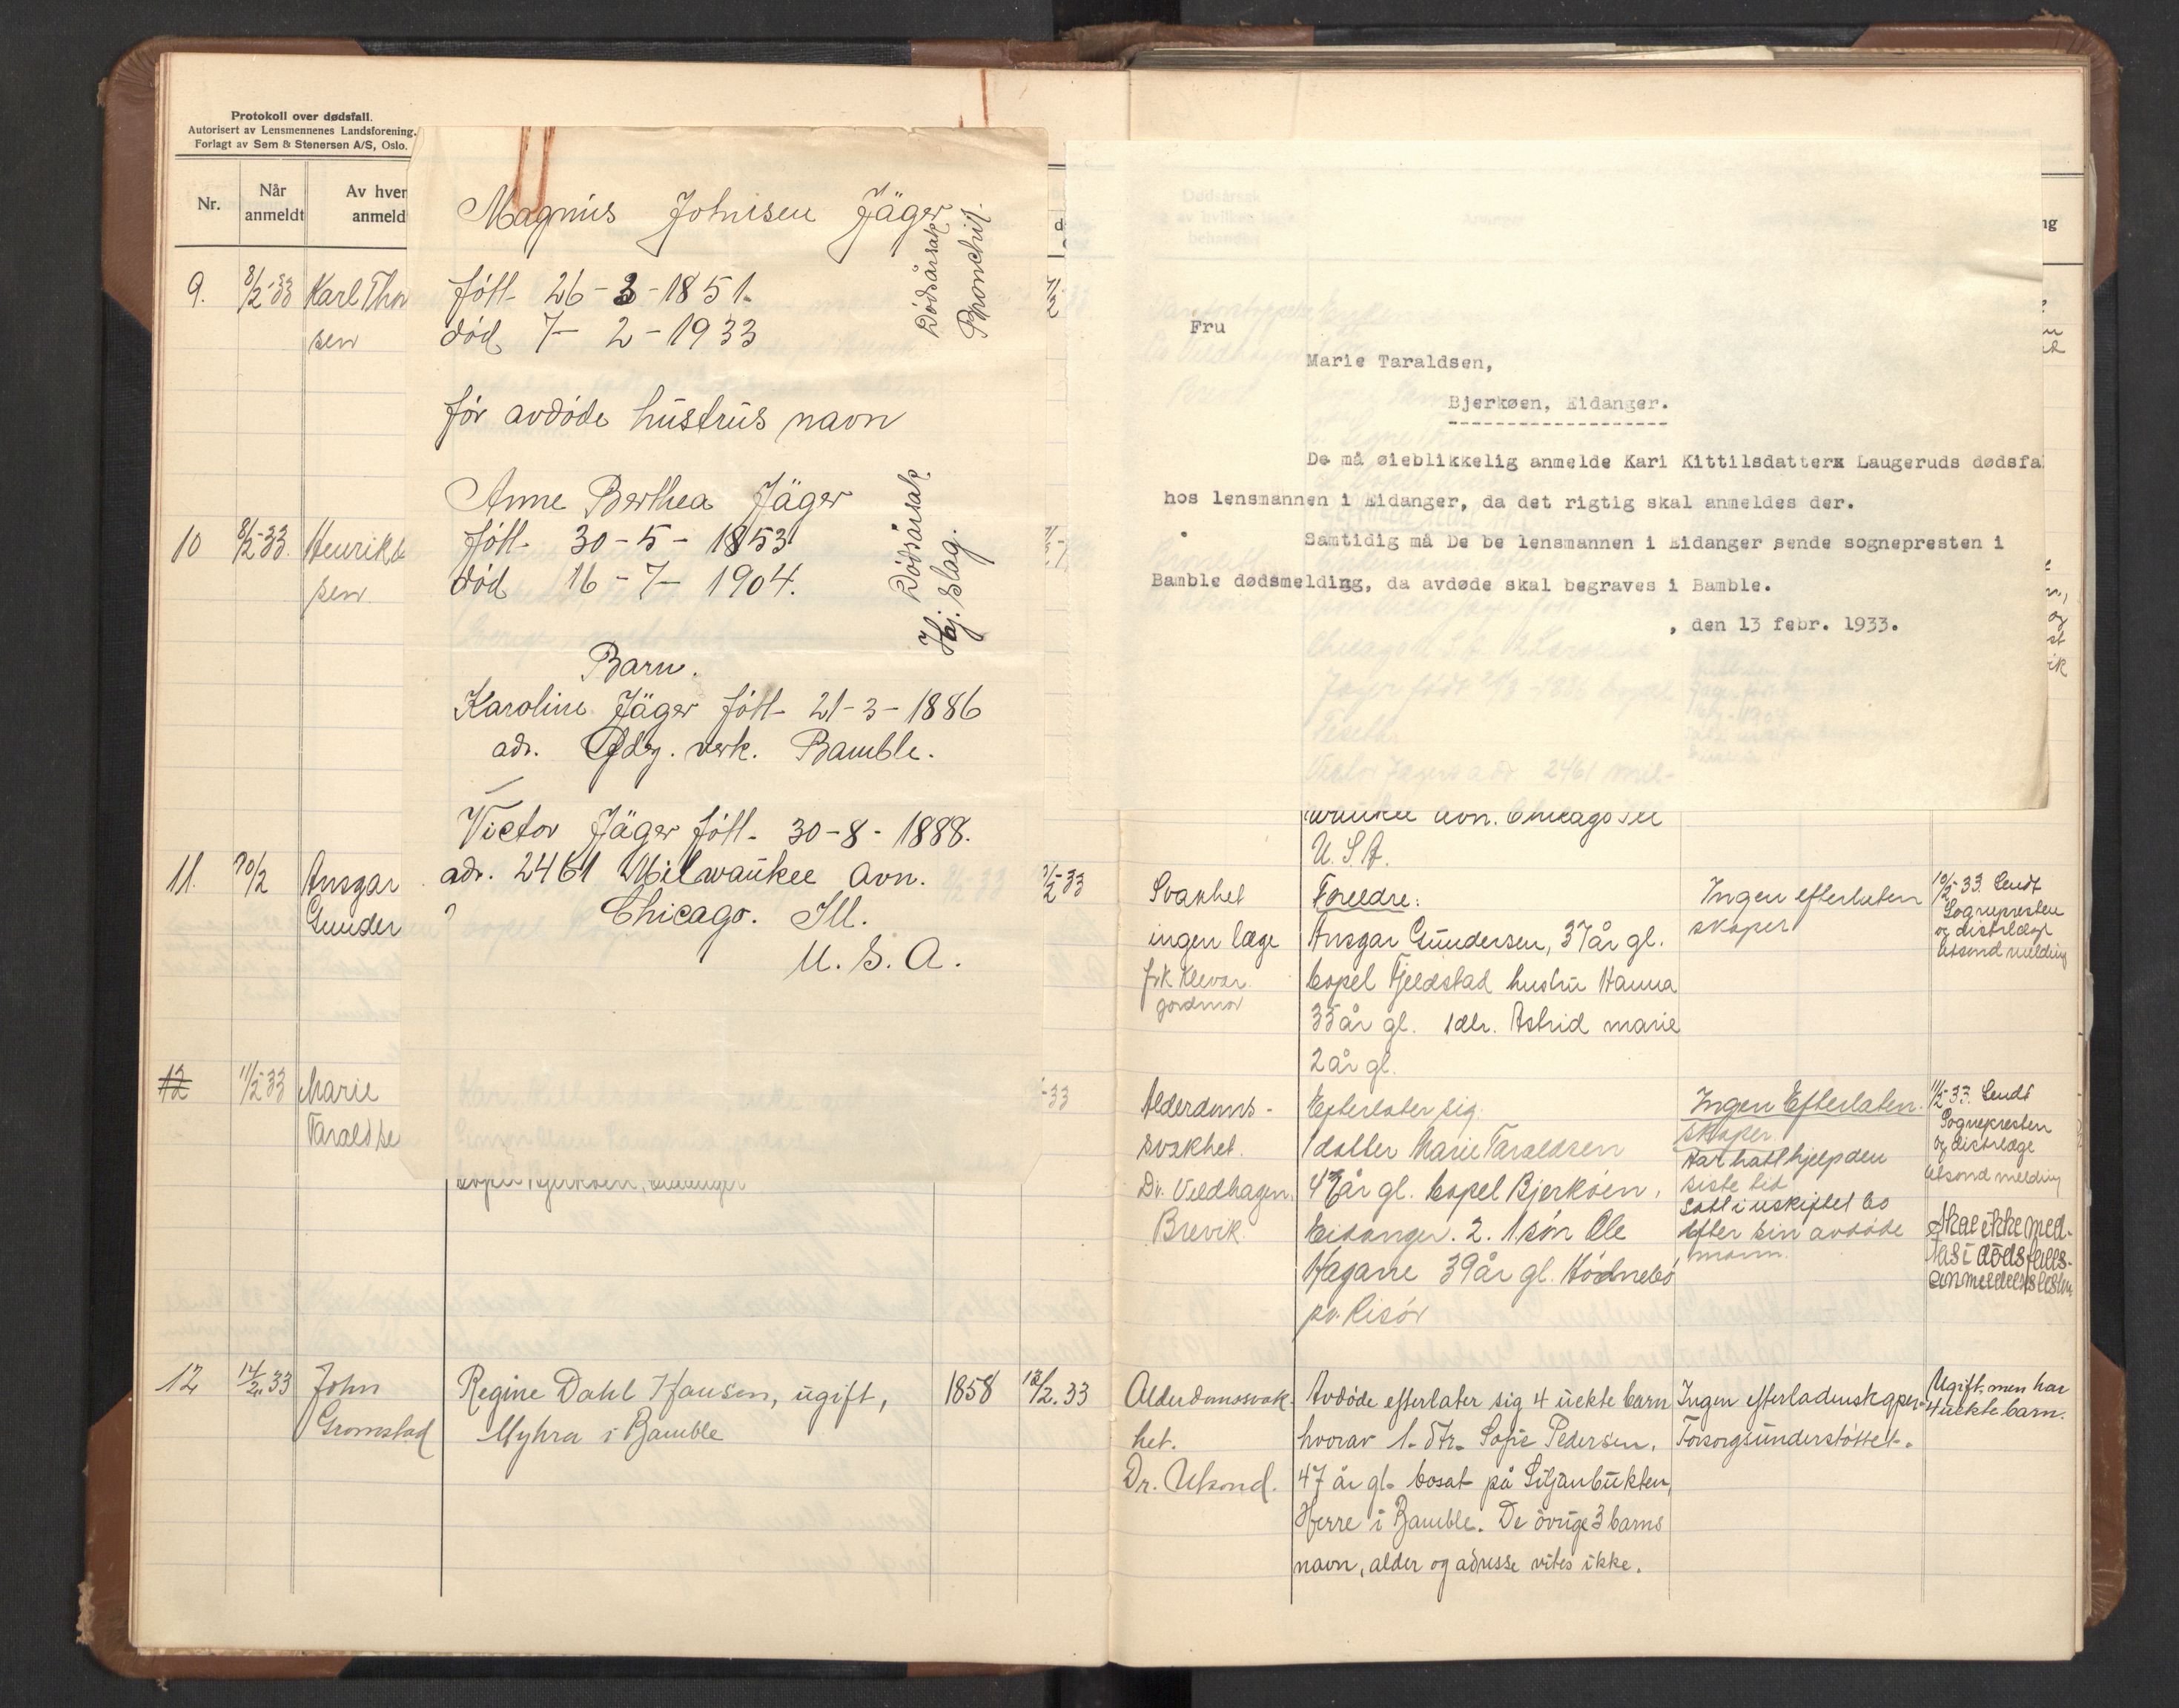 Protokoll over dødsfall.
Autorisert av Lensmennenes Landsforening.
Forlagt av Sem & Stenersen A/S, Oslo.
Nr.
Når
anmeldt
Av hver
anmeld
9.
8/2-33
Karl Thor
sen
10
8/2-33.
Henrik
sen.
11.
10/2
Ansgar
Gunder
12
11/2-33
Marie
Taraldse
Magnus Johnsen Jäger
født 26-3-1851.
død 7-2-1933
Dødsårsak
Bronchit.
før avdøde hustrus navn
Anne Berthea Jäger
født 30-5-1853
død 16-7-1904.
Dødsårsak
Hj. slag.
Barn.
Karoline Jäger født 21-3-1886
adr. verk. Bamble.
Victor Jäger født 30-8-1888.
adr. 2461 Milwaukee Avn.
? Chicago. Ill.
U.S.A.
bopel Bjerkøen, Eidanger
12
12/2.33
John
Gromstad
Regine Dahl Hansen, ugift,
Myhra i Bamble
1858
12/2.33
Fru
Marie Taraldsen,
Bjerkøen, Eidanger.
De må øieblikkelig anmelde Kari Kittilsdatterx Laugeruds dødsfa
hos lensmannen i Eidanger, da det rigtig skal anmeldes der.
Samtidig må De be lensmannen i Eidanger sende sognepresten i
Bamble dødsmelding, da avdøde skal begraves i Bamble.
, den 13 febr. 1933.
waukee avn. Chicago Ill
U.S.A.
Svakhet
ingen læge
frk Klevar
jordmor
Foreldre:
Ansgar Gundersen, 37 år gl.
bopel Fjeldstad hustru Hanna
35 år gl. 1 dtr. Astrid marie
2 år gl.
Ingen efterlaten
skaper
10/2-33. Sendt
Sognepresten
og distrlæge
Ulsond melding
Alderdoms-
svakhet.
Dr. Veldhagen,
Brevik.
Efterlater sig.
1 datter Marie Taraldsen
år gl. bopel Bjerkøen,
Eidanger. 2. 1 søn Ole
39 år gl. Hødnebø
pr. Risør
Ingen Efterlaten.
skaper.
Har hatt hjelp den
siste tid
Satt i uskiftet bo
efter sin avdøde
mann.
11/2-33. Sendt
Sognepresten
og distrlæge
Ulsond melding
Skal ikke med-
tas i dødsfalls-
Alderdomssvak-
het.
Dr. Ulsond.
Avdøde efterlater sig 4 uekte barn
hvorav 1. dtr. Sofie Pedersen,
47 år gl. bosat på Siljanbukten,
Herre i Bamble. De øvrige 3 barns
navn, alder og adresse vites ikke.
Ingen efterladenskaper-
Forsorgsunderstøttet.
Ugift, men har
4 uekte barn.